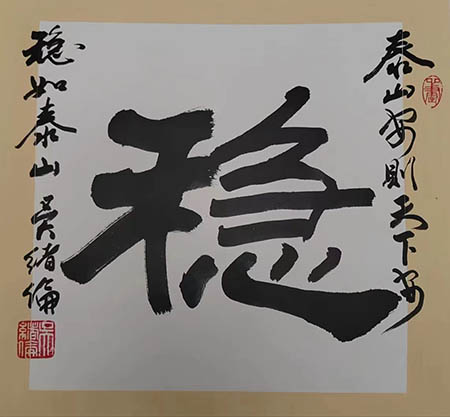 泰山安则天下安
稳
稳如泰山 吴绪伦